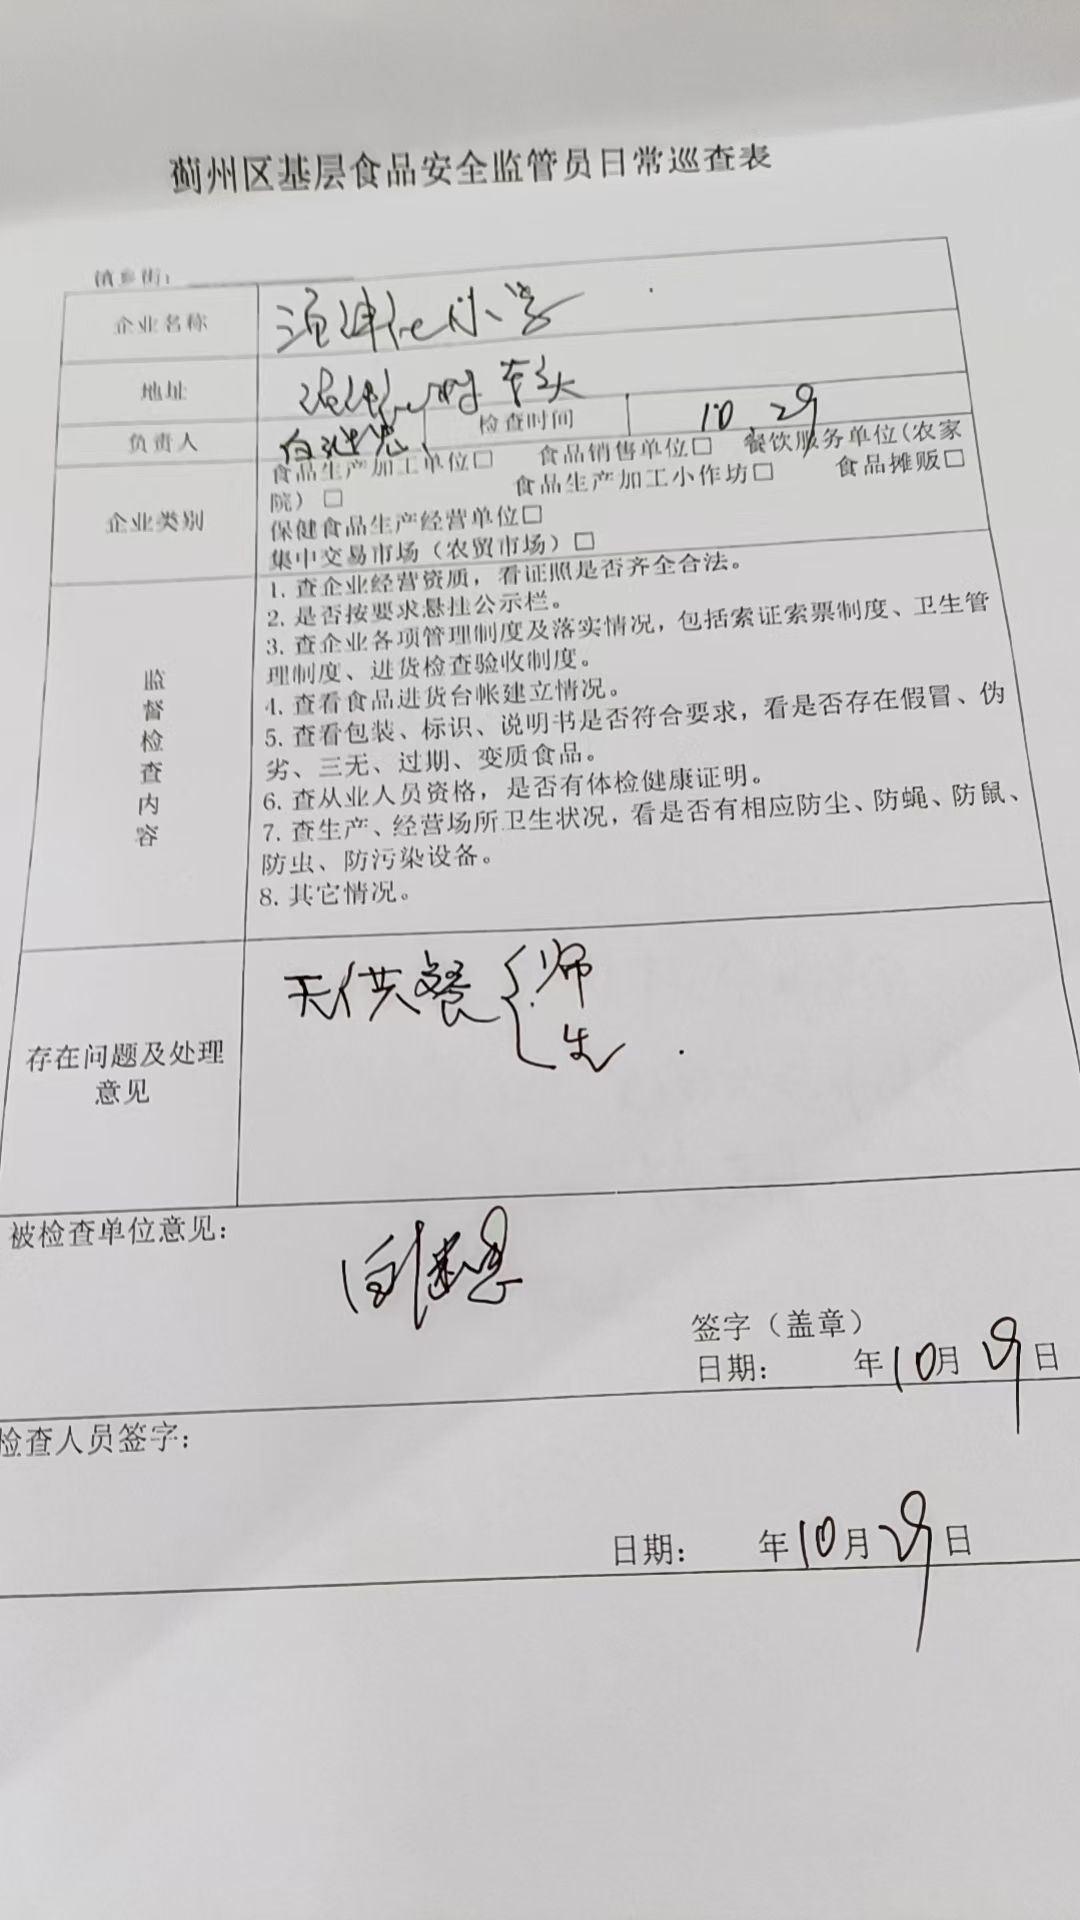 蓟州区基层食品安全监管员日常巡查表
镇乡街：
企业名称 小学
地址 村 东头
负责人 白继忠 检查时间 10. 29
企业类别
食品生产加工单位□ 食品销售单位□ 餐饮服务单位(农家
院）□ 食品生产加工小作坊□ 食品摊贩□
保健食品生产经营单位□
集中交易市场（农贸市场）□
监督检查内容
1. 查企业经营资质，看证照是否齐全合法。
2. 是否按要求悬挂公示栏。
3. 查企业各项管理制度及落实情况，包括索证索票制度、卫生管
理制度、进货检查验收制度。
4. 查看食品进货台帐建立情况。
5. 查看包装、标识、说明书是否符合要求，看是否存在假冒、伪
劣、三无、过期、变质食品。
6. 查从业人员资格，是否有体检健康证明。
7. 查生产、经营场所卫生状况，看是否有相应防尘、防蝇、防鼠、
防虫、防污染设备。
8. 其它情况。
存在问题及处理
意见
无供餐{师
生.
被检查单位意见：
签字（盖章）
日期： 年10月29日
检查人员签字：
日期： 年10月29日